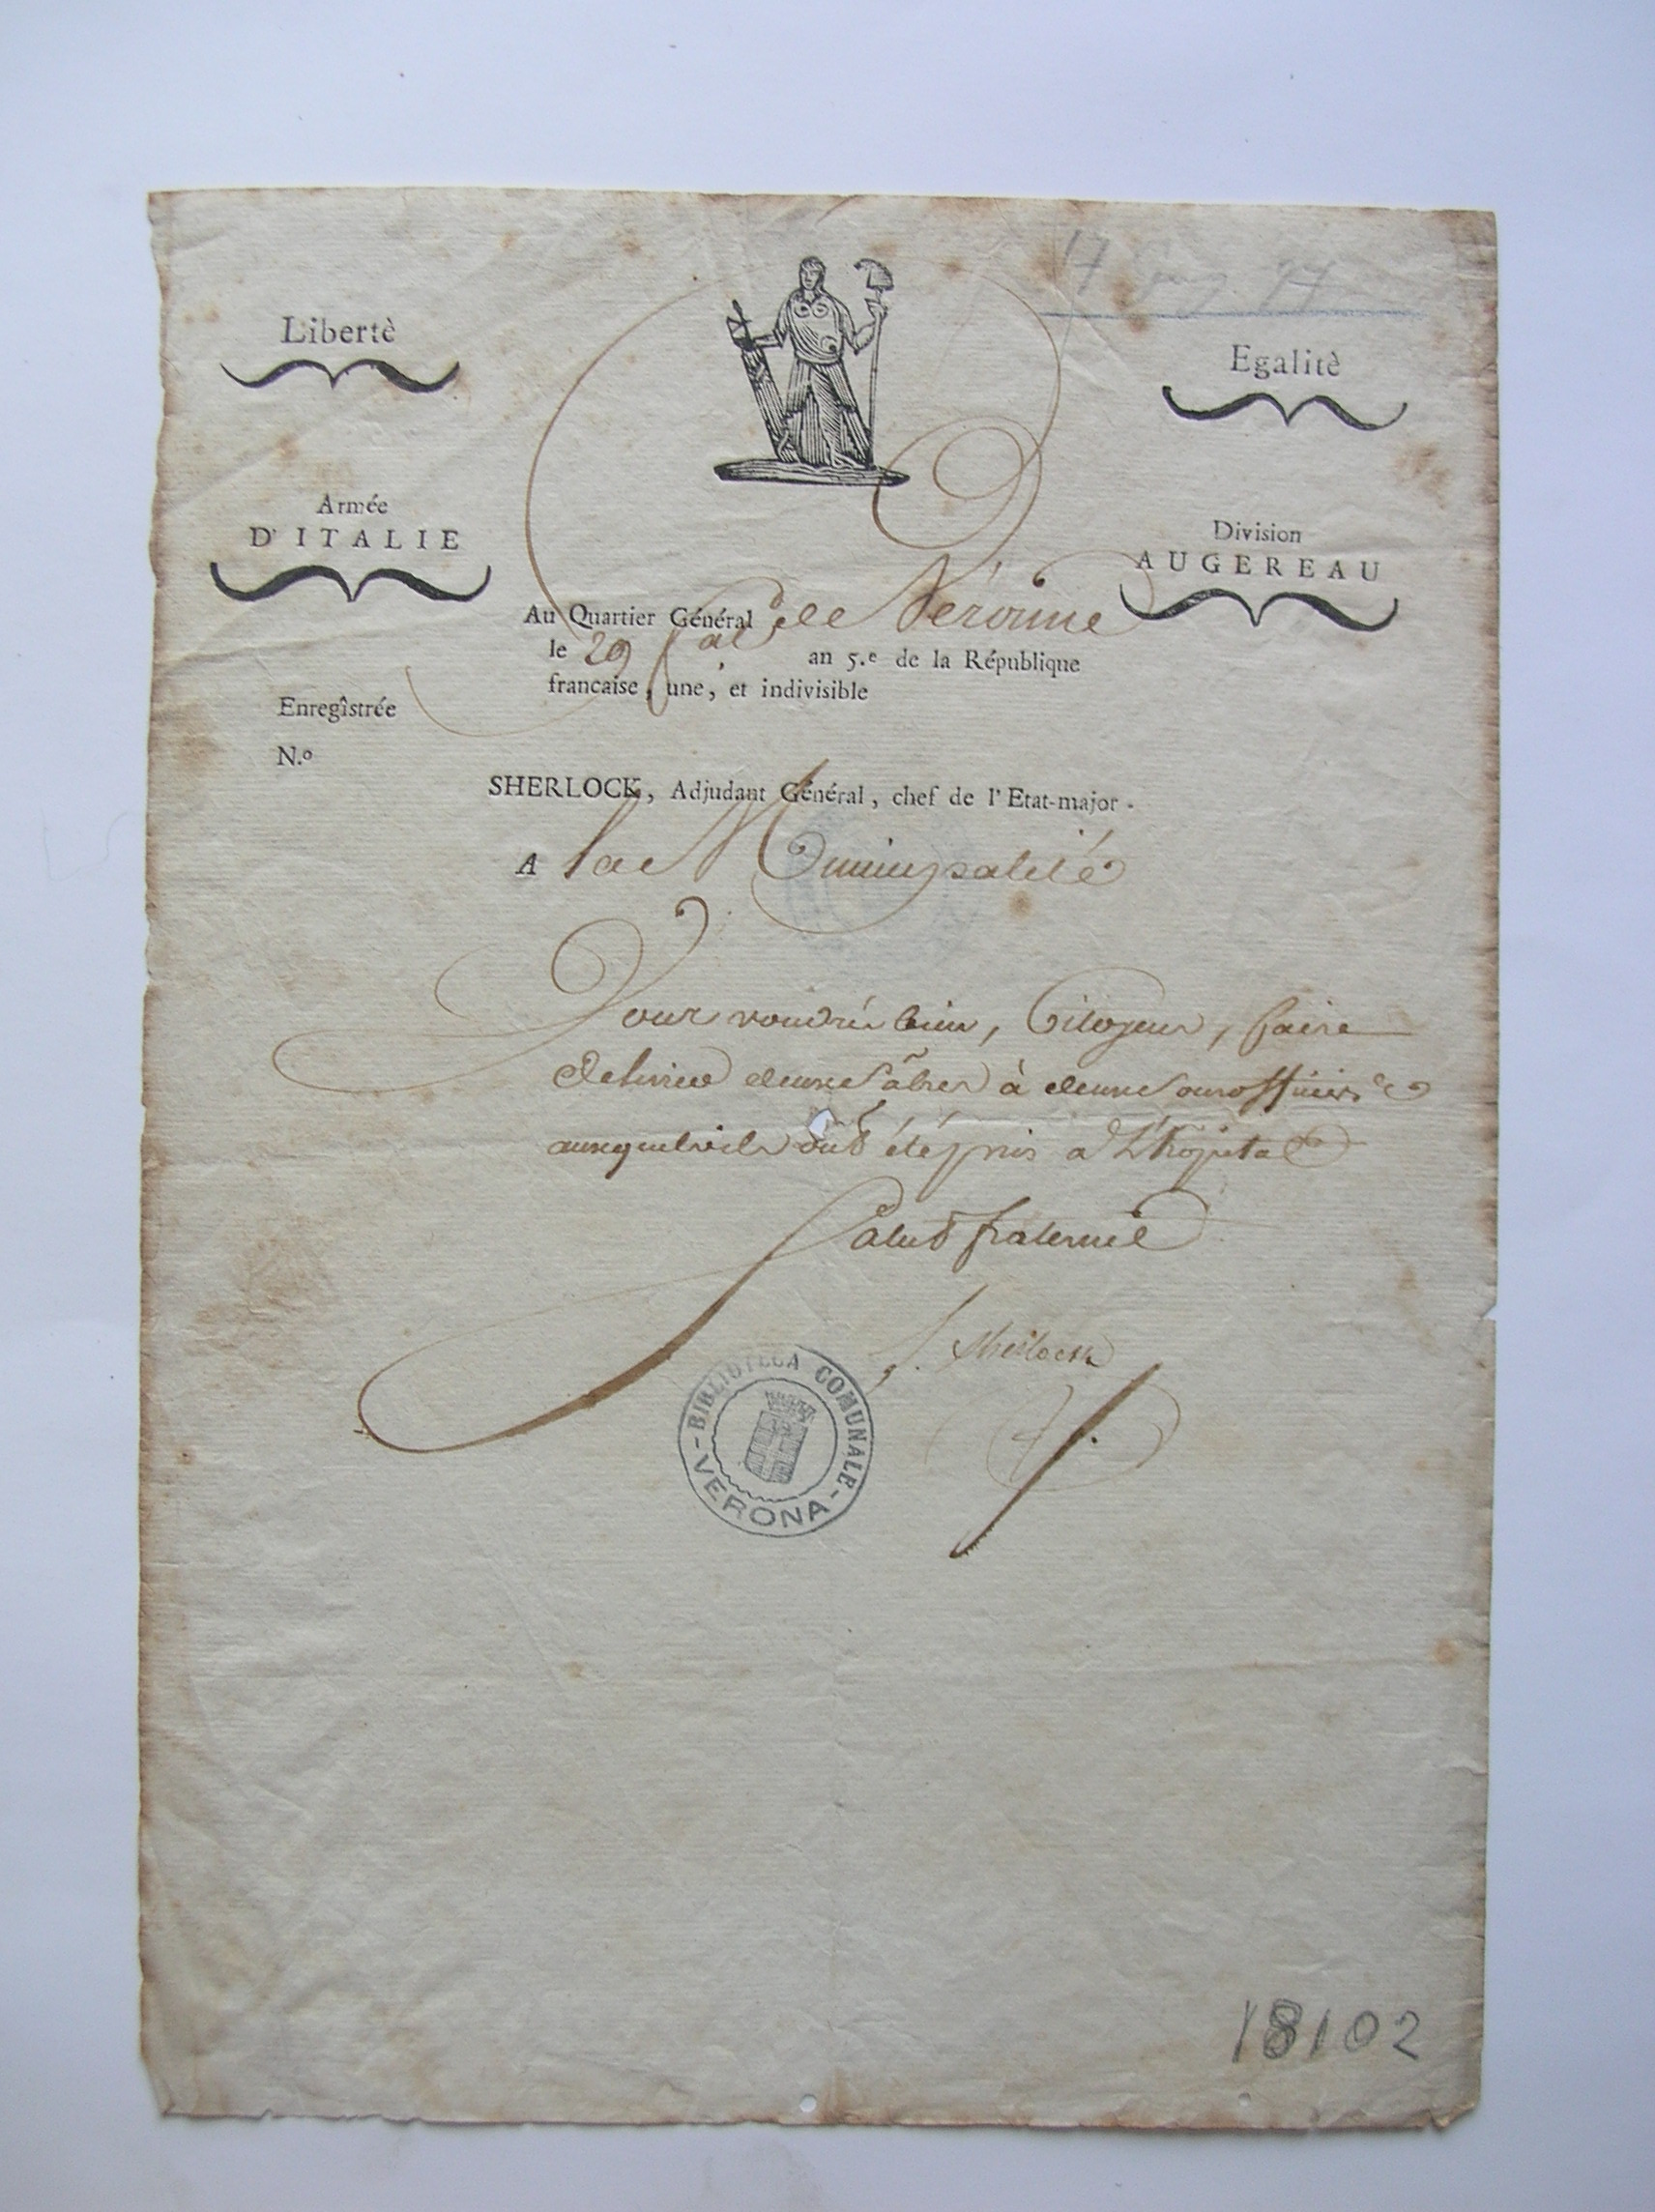 17 Giug 97
Libertè
Egalitè
Armée
D'ITALIE
Division
AUGEREAU
Au Quartier Général de Véronne
le 29 prial an 5.e de la République
francaise, une, et indivisible
Enregîstrée
N.o
SHERLOCK, Adjudant Général, chef de l'Etat-major.
A la Municipalité
Vous voudrés bien, Citoyens, faire
delivrer deux sâbres à deux sousofficiers
auxquels ils ont été pris a L'hopital
Salut fraternel
S. Sherlock
BIBLIOTECA COMUNALE
- VERONA -
18102